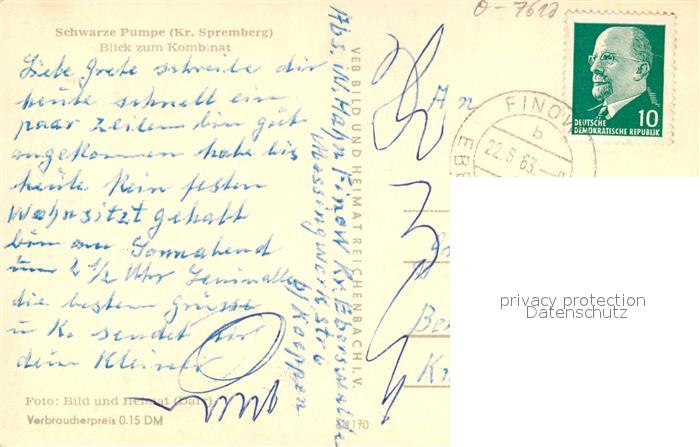 Schwarze Pumpe (Kr. Spremberg)
Blick zum Kombinat
Liebe Grete schreibe dir
heute schnell ein
paar Zeilen bin gut
angekommen habe bis
heute kein festen
Wohnsitzt gehabt
bin am Sonnabend
um 2 1/2 Uhr
die besten Grüsse
u K. sendet dir
dein Kleiner
Foto: Bild und Heimat (Darr)
Verbraucherpreis 0.15 DM
Abs. W. Hahn Finow Kr. Eberswalde
Messingwerkstr 6
b/ Koeppen
VEB BILD UND HEIMAT REICHENBACH I. V.
170
An
Kr
0-7610
FINOW
b
22.8.63.
EBE
10
DEUTSCHE
DEMOKRATISCHE REPUBLIK
privacy protection
Datenschutz